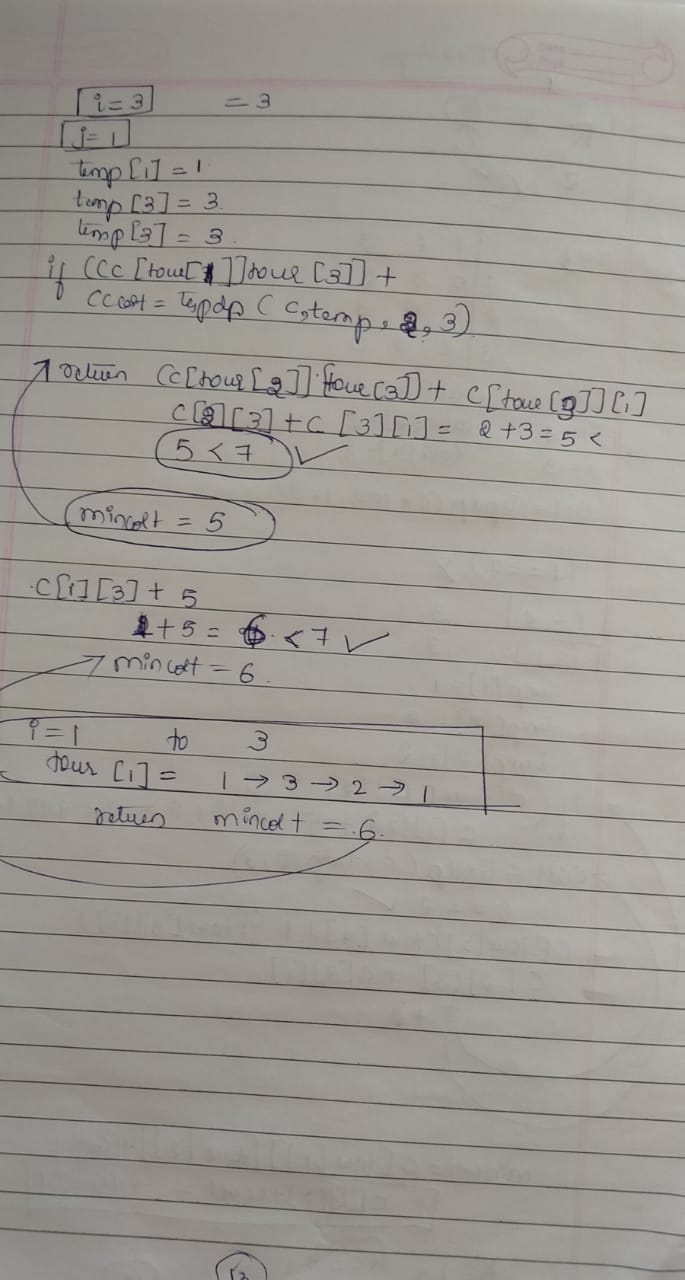 i = 3 = 3
j = 1
temp [1] = 1
temp [3] = 3
temp [3] = 3
if (Cc [tour[1]]tour [3]] +
CCcost = tspdp ( c, temp, 2, 3)
return (c[tour[2]] [tour[3]] + c[tour[3]][1]
c[2][3] + c [3][1] = 2 + 3 = 5 <
5 < 7 ✓
mincost = 5
c[1][3] + 5
1 + 5 = 6 < 7 ✓
mincost = 6
i = 1 to 3
tour [i] = 1 → 3 → 2 → 1
return mincost = 6